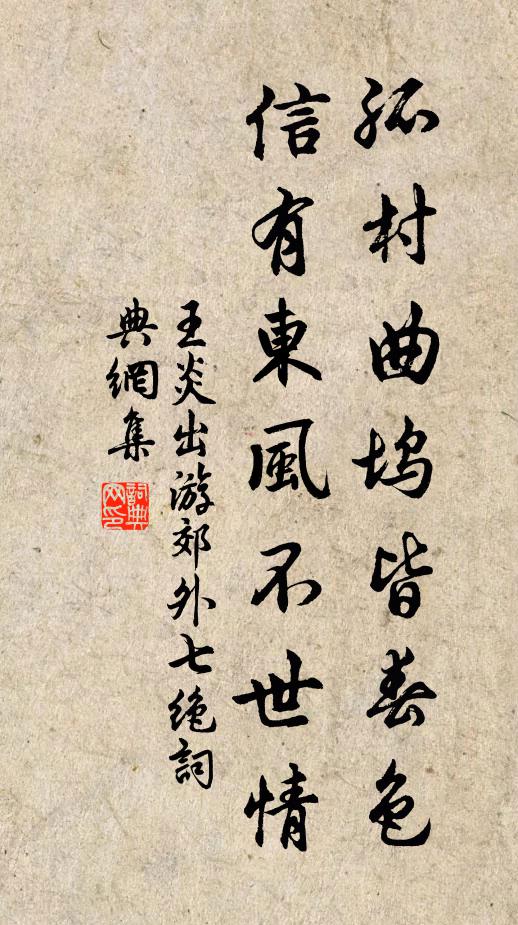 孤村曲塢皆春色
信有東風不世情
王炎出游郊外七絶詞
典網集
詞典
网印